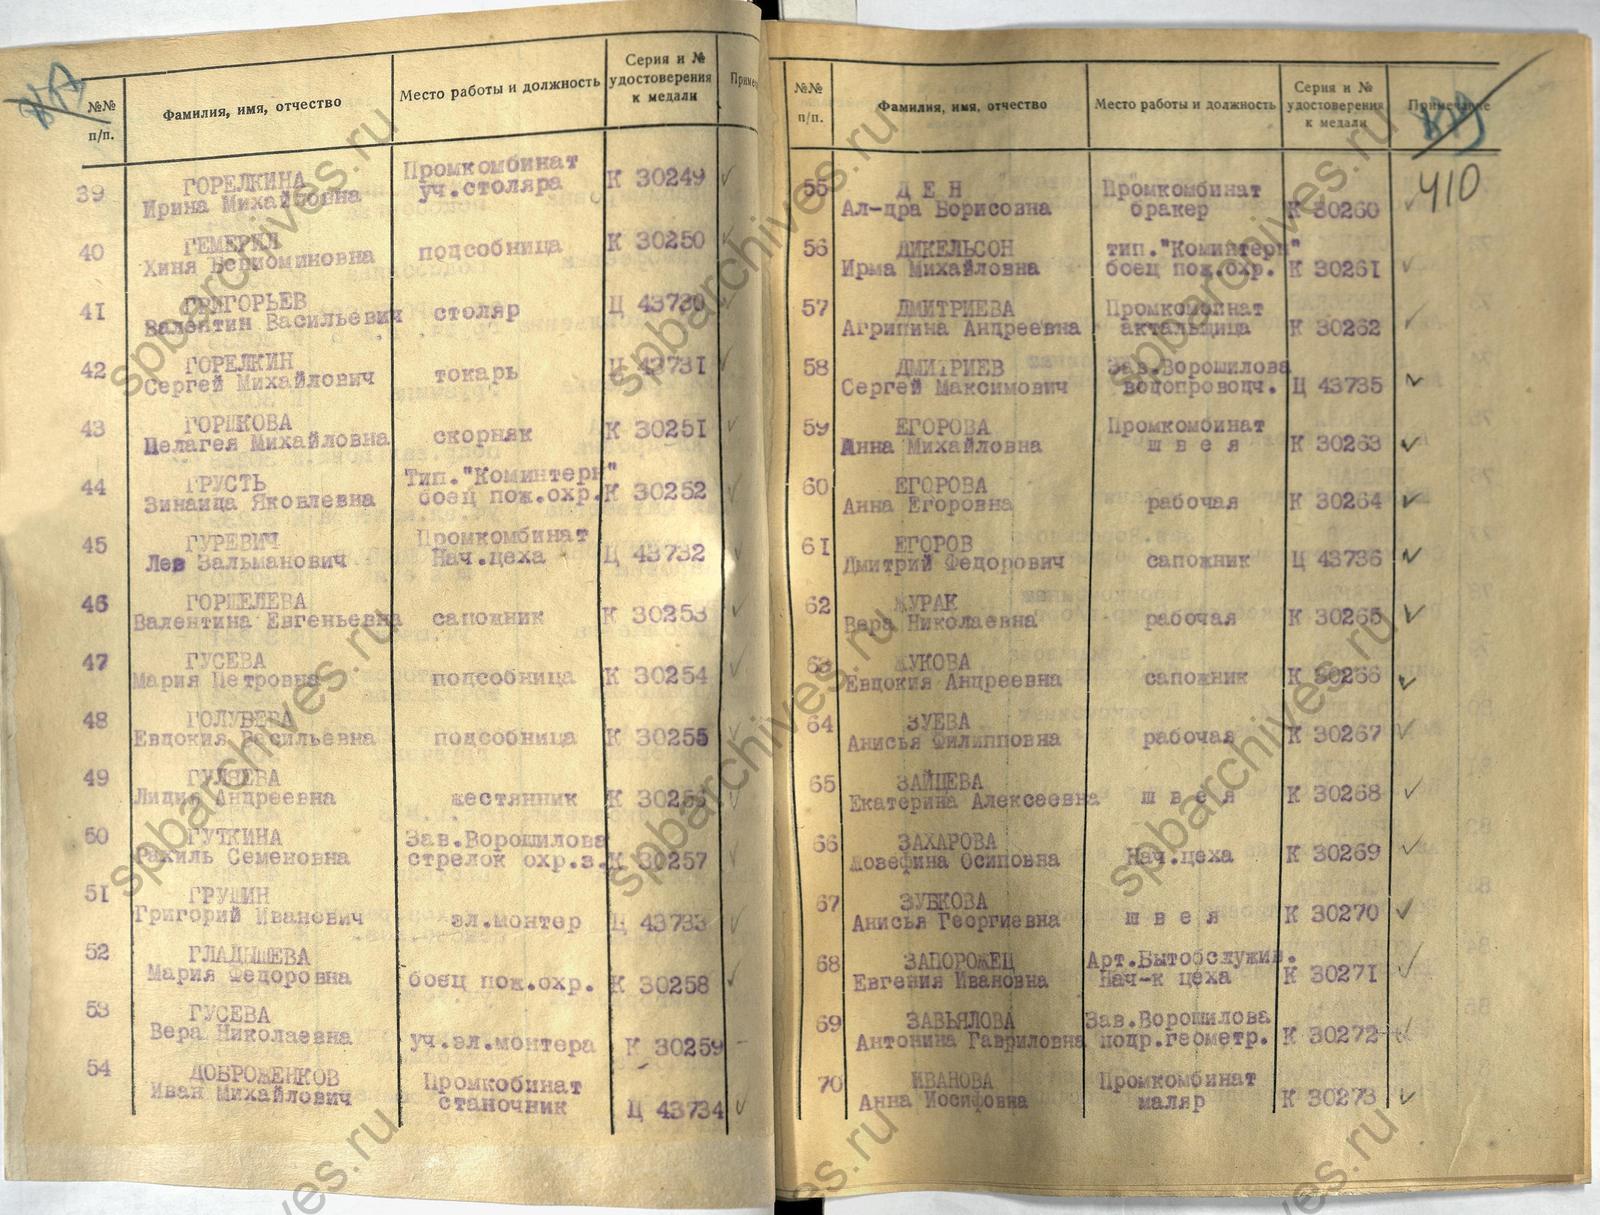 №№ п/п.
Фамилия, имя, отчество
Место работы и должность
Серия и № удостоверения к медали
39 ГОРЕЛКИНА Промкомбинат
Ирина Михайловна уч.столяра К 30249
40 ГЕМЕРИН
Хиня Бенюминовна подсобница К 30250
41 ГРИГОРЬЕВ Ц 43730
Валентин Васильевич столяр
42 ГОРЕЛКИН Ц 43731
Сергей Михайлович токарь
43 ГОРШКОВА
Пелагея Михайловна скорняк К 30251
44 ГРУСТЬ Тип."Коминтерн"
Зинаида Яковлевна боец пож.охр. К 30252
45 ГУРЕВИЧ Промкомбинат
Лев Зальманович Нач.цеха Ц 43732
46 ГОРШЕЛЕВА
Валентина Евгеньевна сапожник К 30253
47 ГУСЕВА
Мария Петровна подсобница К 30254
48 ГОЛУБЕВА
Евдокия Васильевна подсобница К 30255
49 ГУЛЯЕВА
Лидия Андреевна жестянник К 30256
50 ГУТКИНА Зав.Ворошилова
Рахиль Семеновна стрелок охр.з. К 30257
51 ГРУШИН
Григорий Иванович эл.монтер Ц 43733
52 ГЛАДЫШЕВА
Мария Федоровна боец пож.охр. К 30258
53 ГУСЕВА
Вера Николаевна уч.эл.монтера К 30259
54 ДОБРОЖЕНКОВ Промкобинат
Иван Михайлович станочник Ц 43734
№№ п/п.
Фамилия, имя, отчество
Место работы и должность
Серия и № удостоверения к медали
Примечание
410
55 Д Е Н Промкомбинат
Ал-дра Борисовна бракер К 30260
56 ДИКЕЛЬСОН тип."Коминтерн"
Ирма Михайловна боец пож.охр. К 30261
57 ДМИТРИЕВА Промкомбинат
Агрипина Андреевна актальщица К 30262
58 ДМИТРИЕВ Зав.Ворошилова
Сергей Максимович водопроводч. Ц 43735
59 ЕГОРОВА Промкомбинат
Анна Михайловна ш в е я К 30263
60 ЕГОРОВА
Анна Егоровна рабочая К 30264
61 ЕГОРОВ
Дмитрий Федорович сапожник Ц 43736
62 ЖУРАК
Вера Николаевна рабочая К 30265
63 ЖУКОВА
Евдокия Андреевна сапожник К 30266
64 ЗУЕВА
Анисья Филипповна рабочая К 30267
65 ЗАЙЦЕВА
Екатерина Алексеевна ш в е я К 30268
66 ЗАХАРОВА
Иозефина Осиповна Нач.цеха К 30269
67 ЗУБКОВА
Анисья Георгиевна ш в е я К 30270
68 ЗАПОРОЖЕЦ Арт.Бытобслужив.
Евгения Ивановна Нач-к цеха К 30271
69 ЗАВЬЯЛОВА Зав.Ворошилова
Антонина Гавриловна подр.геометр. К 30272
70 ИВАНОВА Промкомбинат
Анна Иосифовна маляр К 30273
spbarchives.ru
spbarchives.ru
spbarchives.ru
spbarchives.ru
spbarchives.ru
spbarchives.ru